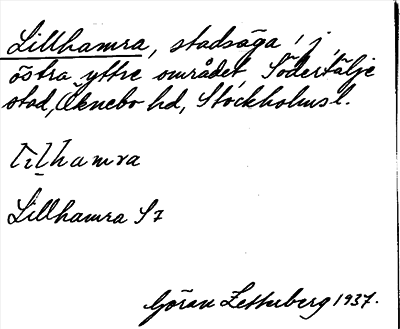 Lillhamra, stadsäga i j,
östra yttre området Södertälje
stad, Öknebo hd, Stockholms l.
Lillhamra S7
Göran Zetterberg 1937.